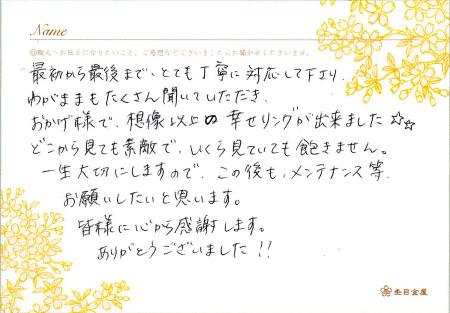 Name
◎職人へお伝えになりたいこと、ご感想などございましたらお聞かせくださいませ。
最初から最後まで、とても丁寧に対応して下さり、
わがままもたくさん聞いていただき、
おかげ様で、想像以上の幸せリングが出来ました☆☆
どこから見ても素敵で、いくら見ていても飽きません。
一生大切にしますので、この後も、メンテナンス等、
お願いしたいと思います。
皆様に心から感謝します。
ありがとうございました!!
杢目金屋